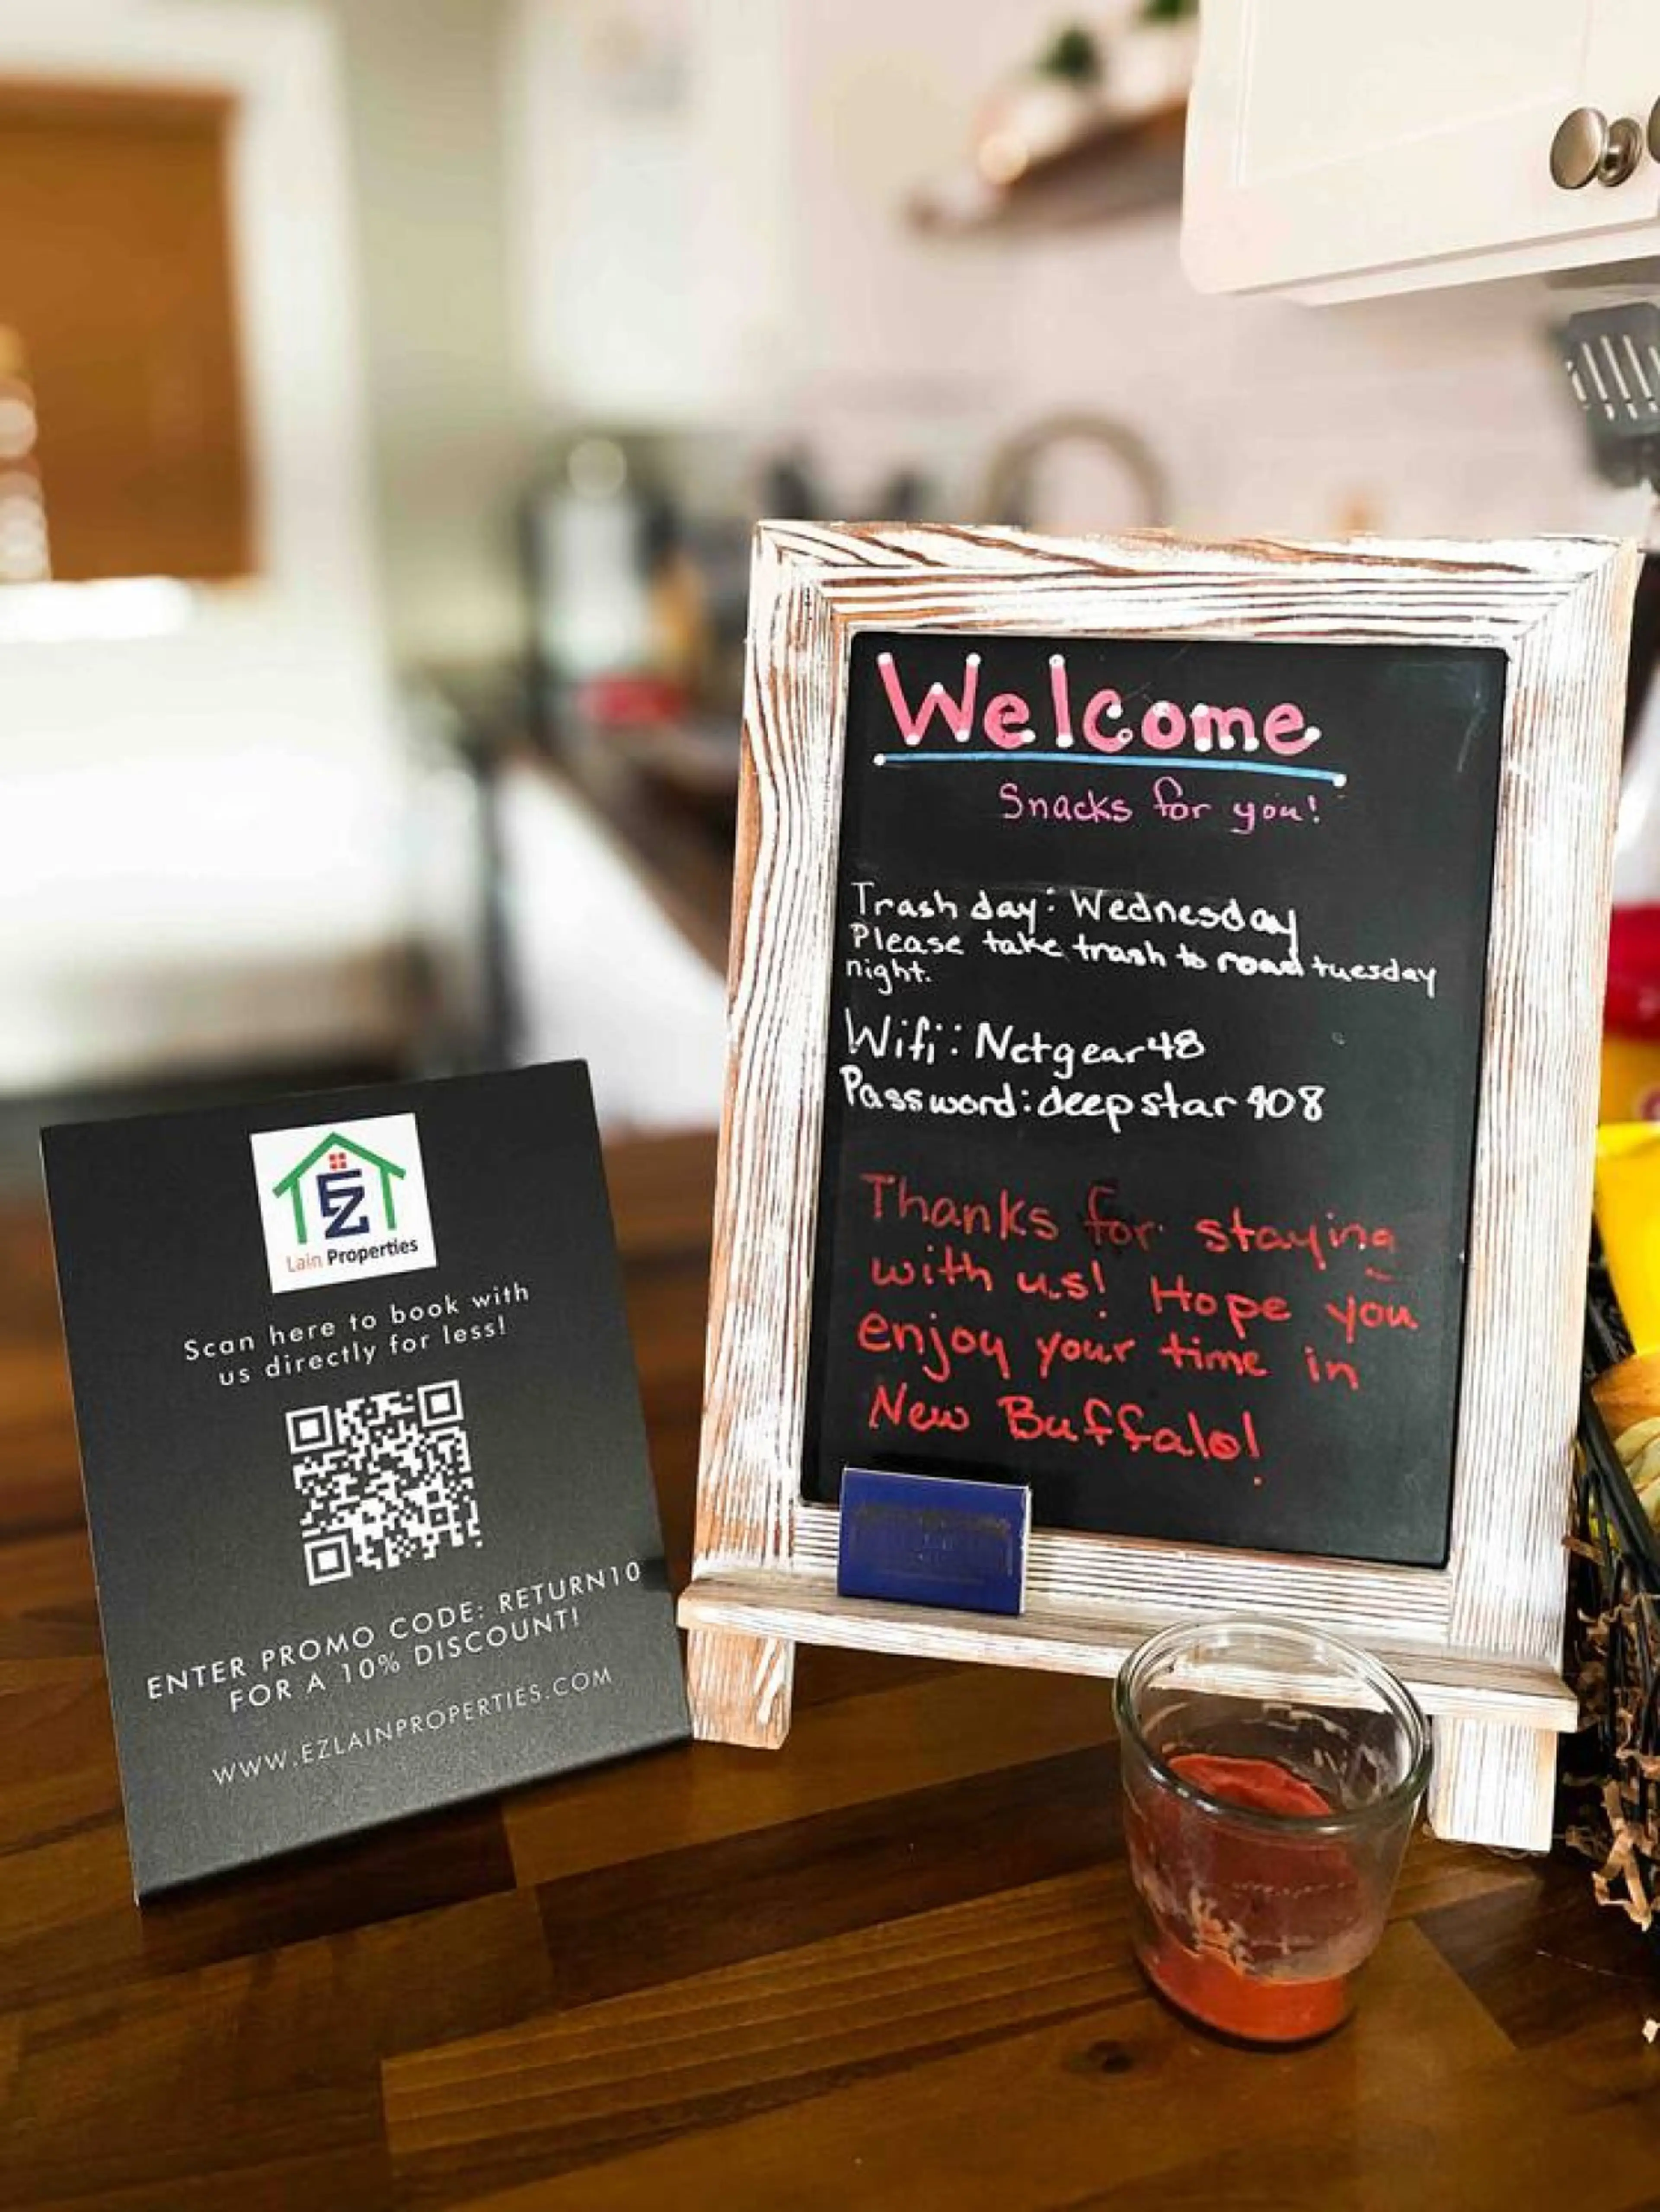 Welcome
Snacks for you!
Trash day: Wednesday
Please take trash to road tuesday
night.
Wifi: Netgear48
Password: deepstar 908
Thanks for staying
with us! Hope you
enjoy your time in
New Buffalo!
EZ
Lain Properties
Scan here to book with
us directly for less!
ENTER PROMO CODE: RETURN10
FOR A 10% DISCOUNT!
WWW.EZLAINPROPERTIES.COM